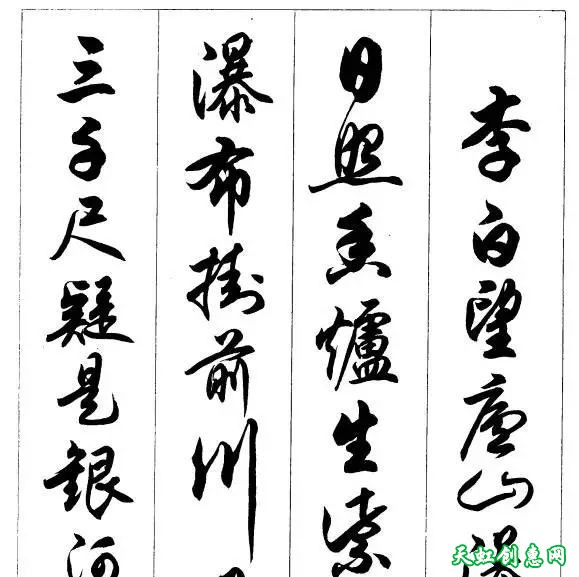 李白望庐山瀑
日照香爐生紫
瀑布掛前川
三千尺疑是銀河
天虹创惠网